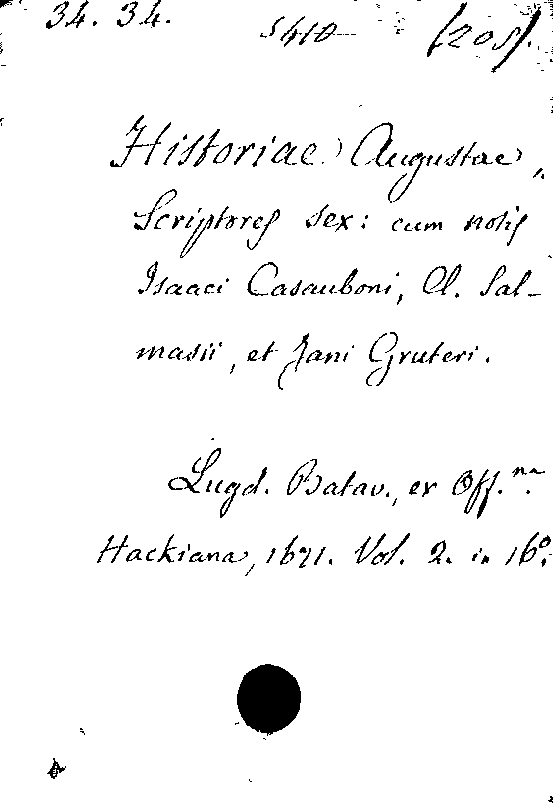 34. 34. 5410 (205).
Historiae Augustae,
Scriptores sex: cum notis
Isaaci Casauboni, Cl. Sal-
masii, et Jani Gruteri.
Lugd. Batav., ex Off.na.
Hackiana, 1671. Vol. 2. in 16º.